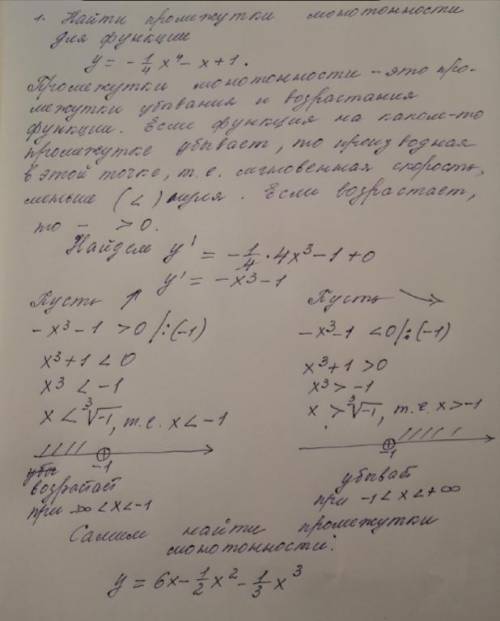 1. Найти промижутки монотонности
для функции
y = -1/4 x⁴ - x + 1.
Промежутки монотонности - это про-
межутки убывания и возрастания
функции. Если функция на каком-то
промежутке убывает, то производная
в этой точке, т.е. мгновенная скорость,
меньше (<) нуля. Если возрастает,
то - > 0.
Найдем y' = -1/4 · 4x³ - 1 + 0
y' = -x³ - 1
Пусть ↑
-x³ - 1 > 0 /:(-1)
x³ + 1 < 0
x³ < -1
x < ∛-1, т.е. x < -1
-1
возрастает
при ∞ < x < -1
Пусть ↘
-x³ - 1 < 0 /:(-1)
x³ + 1 > 0
x³ > -1
x > ∛-1, т.е. x > -1
-1
убывает
при -1 < x < +∞
Самим найти промежутки
монотонности:
y = 6x - 1/2 x² - 1/3 x³